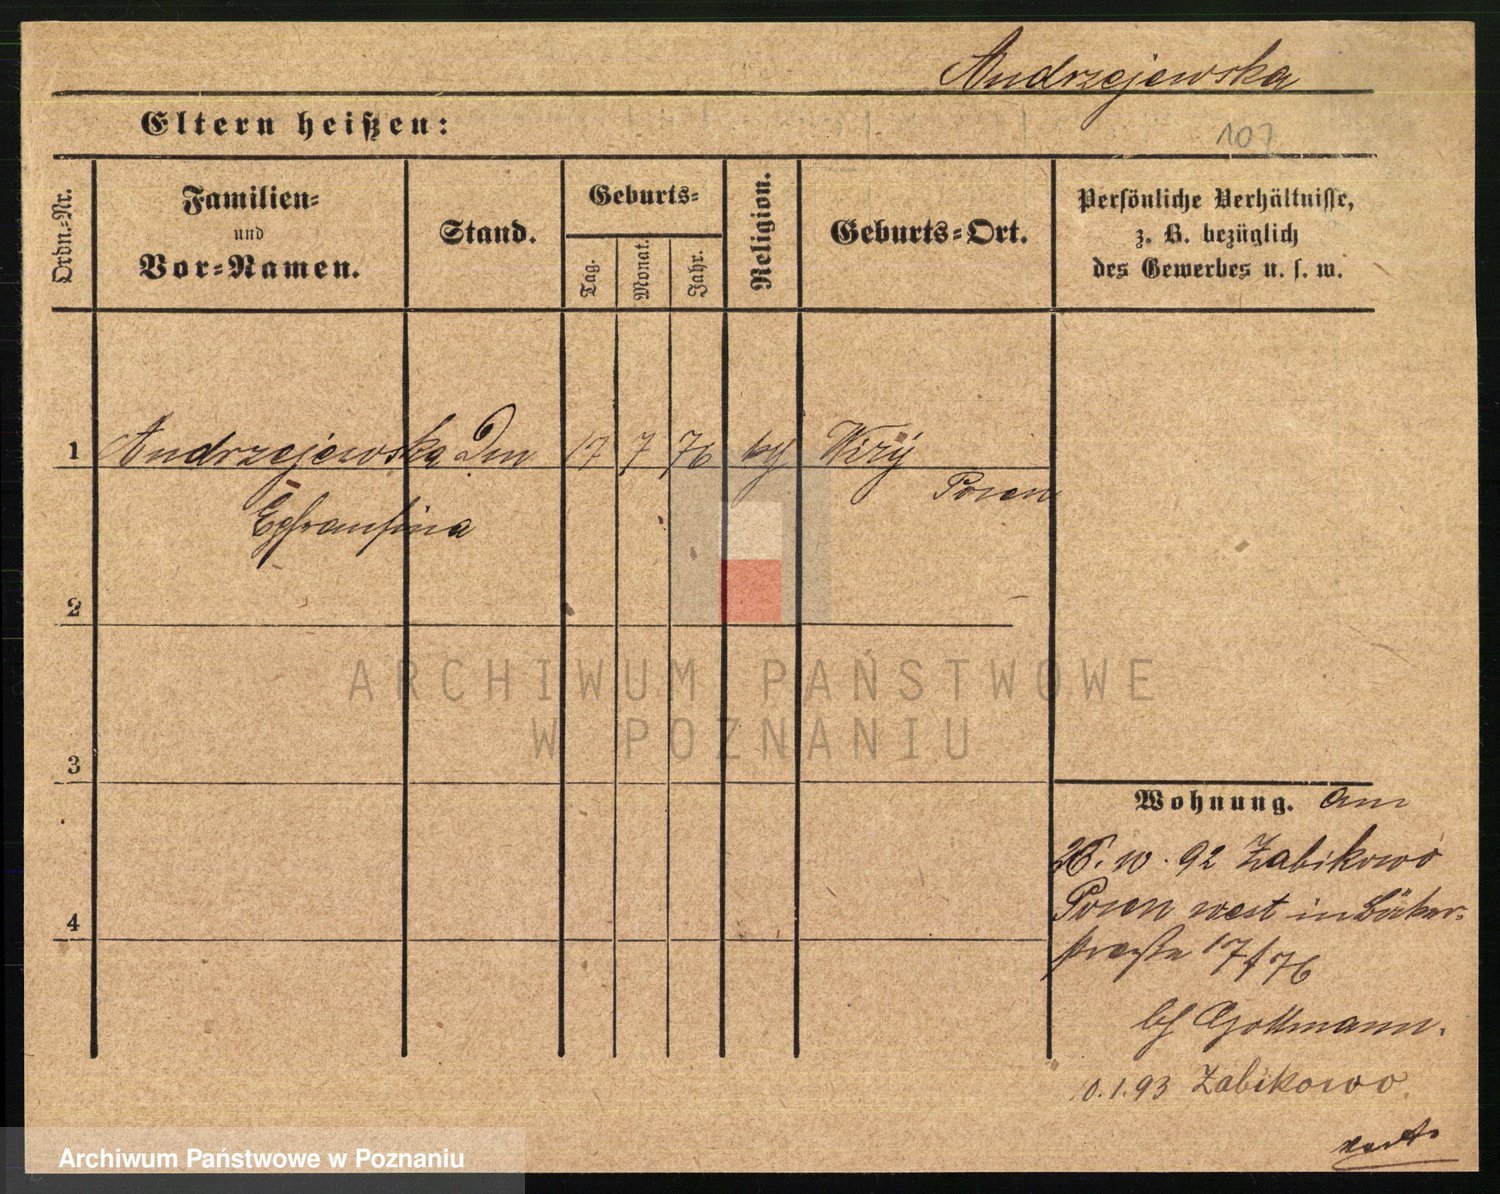 Andrzejewska
Eltern heißen:
107
Ordn.-Nr.
Familien-
und
Vor-Namen.
Stand.
Geburts-
Tag.
Monat.
Jahr.
Religion.
Geburts-Ort.
Persönliche Verhältnisse,
z. B. bezüglich
des Gewerbes u. s. w.
1 Andrzejewska 17 7 76 Wiry
Posen
2
3
4
Wohnung. am
92 Zabikowo
Posen west in Bäcker-
straße 17/76
Gottmann.
10.1.93 Zabikowo
ARCHIWUM PAŃSTWOWE
W POZNANIU
Archiwum Państwowe w Poznaniu